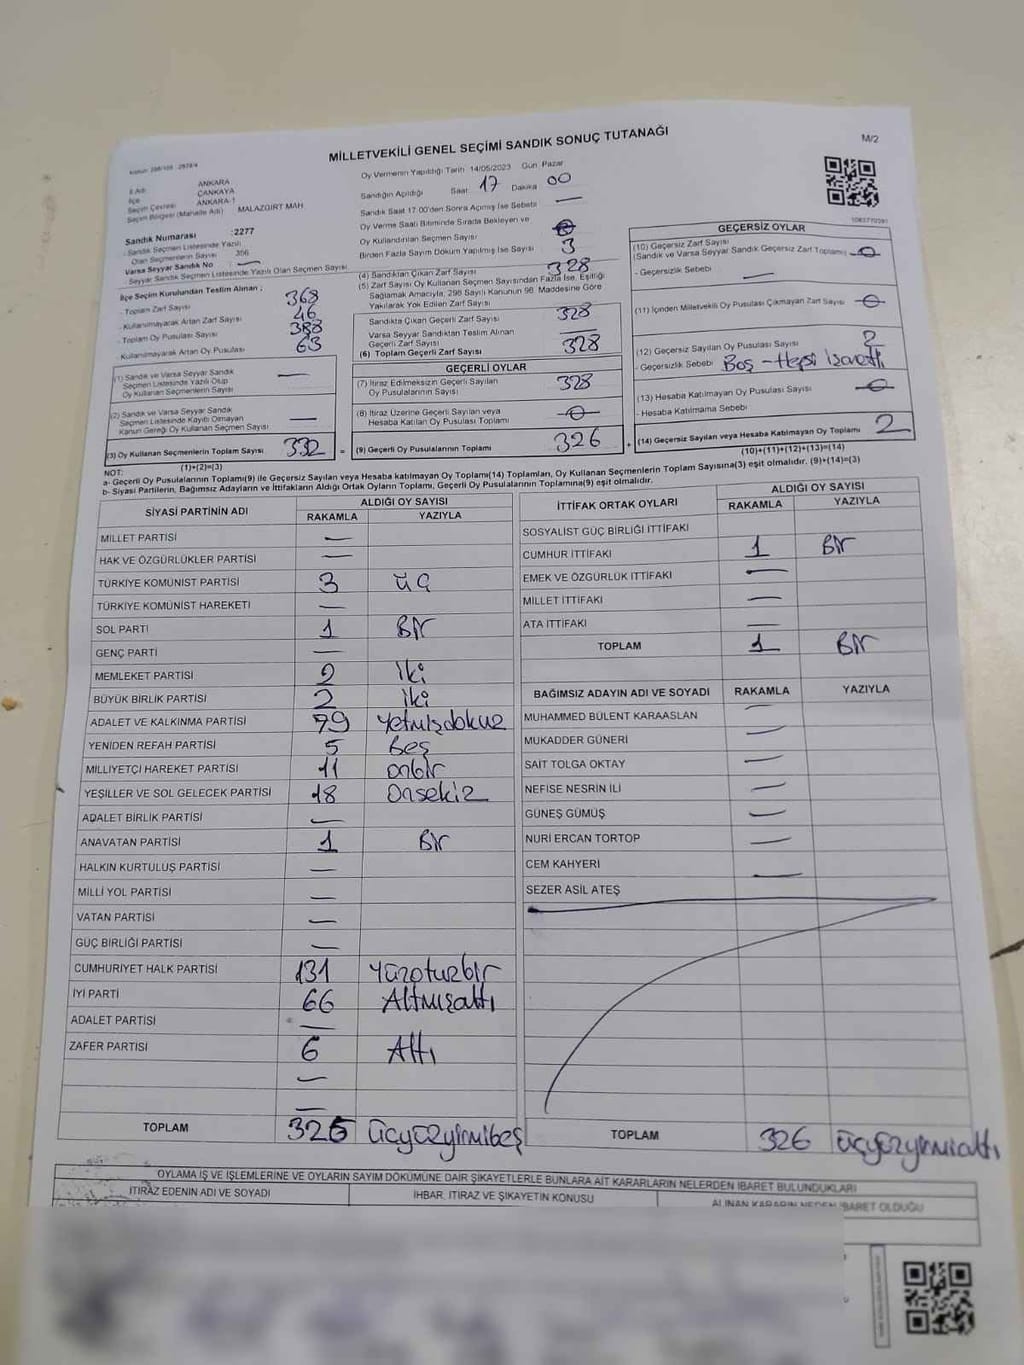 MİLLETVEKİLİ GENEL SEÇİMİ SANDIK SONUÇ TUTANAĞI
M/2
İl Adı : ANKARA
İlçe : ÇANKAYA
Seçim Çevresi : ANKARA-1
Seçim Bölgesi (Mahalle Adı) MALAZGİRT MAH
Sandık Numarası :2277
- Sandık Seçmen Listesinde Yazılı
Olan Seçmenlerin Sayısı 356
Varsa Seyyar Sandık No —
- Seyyar Sandık Seçmen Listesinde Yazılı Olan Seçmen Sayısı
İlçe Seçim Kurulundan Teslim Alınan ;
- Toplam Zarf Sayısı 368
- Kullanılmayarak Artan Zarf Sayısı 46
- Toplam Oy Pusulası Sayısı 388
- Kullanılmayarak Artan Oy Pusulası 63
(1) Sandık ve Varsa Seyyar Sandık
Seçmen Listesinde Yazılı Olup
Oy Kullanan Seçmenlerin Sayısı —
(2) Sandık ve Varsa Seyyar Sandık
Seçmen Listesinde Kaydı Olmayan
Kanun Gereği Oy Kullanan Seçmen Sayısı —
(3) Oy Kullanan Seçmenlerin Toplam Sayısı 332 =
(1)+(2)=(3)
Oy Vermenin Yapıldığı Tarih 14/05/2023 Gün Pazar
Sandığın Açıldığı Saat 17 Dakika 00
Sandık Saat 17.00'den Sonra Açılmış İse Sebebi —
Oy Verme Saati Bitiminde Sırada Bekleyen ve
Oy Kullandırılan Seçmen Sayısı
Birden Fazla Sayım Döküm Yapılmış İse Sayısı 3
(4) Sandıktan Çıkan Zarf Sayısı 328
(5) Zarf Sayısı Oy Kullanan Seçmen Sayısından Fazla İse, Eşitliği
Sağlamak Amacıyla, 298 Sayılı Kanunun 98. Maddesine Göre
Yakılarak Yok Edilen Zarf Sayısı
Sandıkta Çıkan Geçerli Zarf Sayısı 328
Varsa Seyyar Sandıktan Teslim Alınan
Geçerli Zarf Sayısı —
(6) Toplam Geçerli Zarf Sayısı 328
GEÇERLİ OYLAR
(7) İtiraz Edilmeksizin Geçerli Sayılan
Oy Pusulalarının Sayısı 328
(8) İtiraz Üzerine Geçerli Sayılan veya
Hesaba Katılan Oy Pusulası Toplamı
(9) Geçerli Oy Pusulalarının Toplamı 326 +
GEÇERSİZ OYLAR
(10) Geçersiz Zarf Sayısı
(Sandık ve Varsa Seyyar Sandık Geçersiz Zarf Toplamı)
- Geçersizlik Sebebi —
(11) İçinden Milletvekili Oy Pusulası Çıkmayan Zarf Sayısı
(12) Geçersiz Sayılan Oy Pusulası Sayısı 2
- Geçersizlik Sebebi Boş - Hepsi
(13) Hesaba Katılmayan Oy Pusulası Sayısı
- Hesaba Katılmama Sebebi
(14) Geçersiz Sayılan veya Hesaba Katılmayan Oy Toplamı 2
(10)+(11)+(12)+(13)=(14)
NOT:
a- Geçerli Oy Pusulalarının Toplamı(9) ile Geçersiz Sayılan veya Hesaba katılmayan Oy Toplamı(14) Toplamları, Oy Kullanan Seçmenlerin Toplam Sayısına(3) eşit olmalıdır. (9)+(14)=(3)
b- Siyasi Partilerin, Bağımsız Adayların ve İttifakların Aldığı Ortak Oyların Toplamı, Geçerli Oy Pusulalarının Toplamına(9) eşit olmalıdır.
SİYASİ PARTİNİN ADI ALDIĞI OY SAYISI
RAKAMLA YAZIYLA
MİLLET PARTİSİ —
HAK VE ÖZGÜRLÜKLER PARTİSİ —
TÜRKİYE KOMÜNİST PARTİSİ 3 üç
TÜRKİYE KOMÜNİST HAREKETİ —
SOL PARTİ 1 Bir
GENÇ PARTİ —
MEMLEKET PARTİSİ 2 iki
BÜYÜK BİRLİK PARTİSİ 2 iki
ADALET VE KALKINMA PARTİSİ 79 Yetmişdokuz
YENİDEN REFAH PARTİSİ 5 Beş
MİLLİYETÇİ HAREKET PARTİSİ 11 onbir
YEŞİLLER VE SOL GELECEK PARTİSİ 18 Onsekiz
ADALET BİRLİK PARTİSİ —
ANAVATAN PARTİSİ 1 Bir
HALKIN KURTULUŞ PARTİSİ —
MİLLİ YOL PARTİSİ —
VATAN PARTİSİ —
GÜÇ BİRLİĞİ PARTİSİ —
CUMHURİYET HALK PARTİSİ 131 Yüzotuzbir
İYİ PARTİ 66 Altmışaltı
ADALET PARTİSİ —
ZAFER PARTİSİ 6 Altı
—
—
TOPLAM 325 üçyüzyirmibeş
İTTİFAK ORTAK OYLARI ALDIĞI OY SAYISI
RAKAMLA YAZIYLA
SOSYALİST GÜÇ BİRLİĞİ İTTİFAKI
CUMHUR İTTİFAKI 1 Bir
EMEK VE ÖZGÜRLÜK İTTİFAKI —
MİLLET İTTİFAKI —
ATA İTTİFAKI —
TOPLAM 1 Bir
BAĞIMSIZ ADAYIN ADI VE SOYADI RAKAMLA YAZIYLA
MUHAMMED BÜLENT KARAASLAN —
MUKADDER GÜNERİ —
SAİT TOLGA OKTAY —
NEFİSE NESRİN İLİ —
GÜNEŞ GÜMÜŞ —
NURİ ERCAN TORTOP —
CEM KAHYERİ —
SEZER ASİL ATEŞ
TOPLAM 326 üçyüzyirmialtı
OYLAMA İŞ VE İŞLEMLERİNE VE OYLARIN SAYIM DÖKÜMÜNE DAİR ŞİKAYETLERLE BUNLARA AİT KARARLARIN NELERDEN İBARET BULUNDUKLARI
İTİRAZ EDENİN ADI VE SOYADI İHBAR, İTİRAZ VE ŞİKAYETİN KONUSU ALINAN KARARIN NEDEN İBARET OLDUĞU